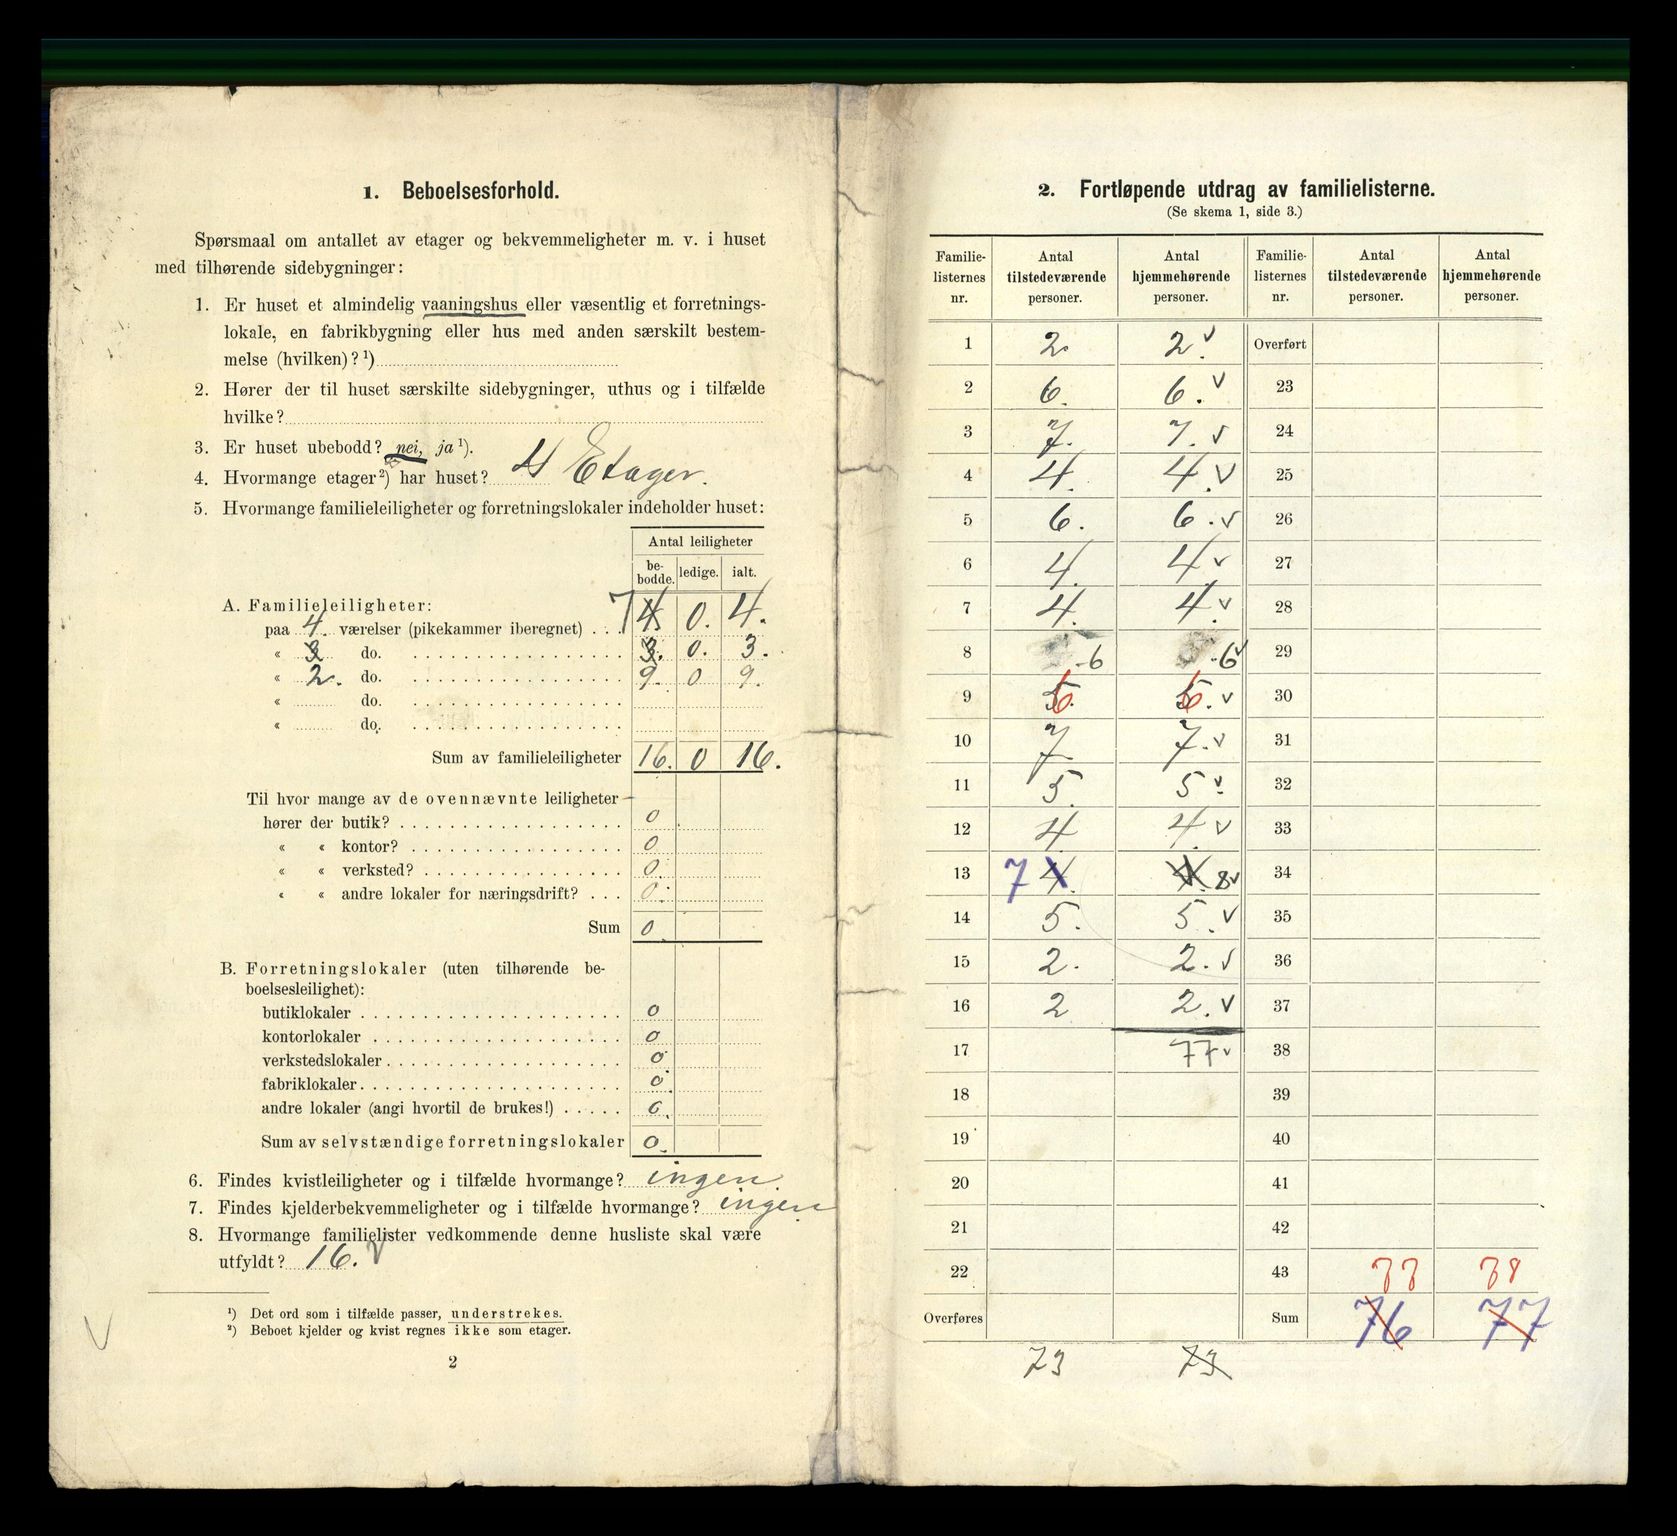 1. Beboelsesforhold.
Spørsmaal om antallet av etager og bekvemmeligheter m. v. i huset
med tilhørende sidebygninger:
1. Er huset et almindelig vaaningshus eller væsentlig et forretnings-
lokale, en fabrikbygning eller hus med anden særskilt bestem-
melse (hvilken)? ¹)
2. Hører der til huset særskilte sidebygninger, uthus og i tilfælde
hvilke?
3. Er huset ubebodd? nei, ja ¹).
4. Hvormange etager ²) har huset? 4 Etager.
5. Hvormange familieleiligheter og forretningslokaler indeholder huset:
Antal leiligheter
be-bodde. ledige. ialt.
A. Familieleiligheter:
paa 4. værelser (pikekammer iberegnet) . . . 7 4 0. 4.
« 3 do. 3. 0. 3.
« 2. do. 9. 0 9.
« do.
« do.
Sum av familieleiligheter 16. 0 16.
Til hvor mange av de ovennævnte leiligheter
hører der butik? 0
« « kontor? 0
« « verksted? 0.
« « andre lokaler for næringsdrift? . . . 0.
Sum 0.
B. Forretningslokaler (uten tilhørende be-
boelsesleilighet):
butiklokaler 0
kontorlokaler 0
verkstedslokaler 0
fabriklokaler 0
andre lokaler (angi hvortil de brukes!) 0.
Sum av selvstændige forretningslokaler 0.
6. Findes kvistleiligheter og i tilfælde hvormange? ingen.
7. Findes kjelderbekvemmeligheter og i tilfælde hvormange? ingen
8. Hvormange familielister vedkommende denne husliste skal være
utfyldt? 16. V
¹) Det ord som i tilfælde passer, understrekes.
²) Beboet kjelder og kvist regnes ikke som etager.
V
2
2. Fortløpende utdrag av familielisterne.
(Se skema 1, side 3.)
Familie-listernes nr. Antal tilstedeværende personer. Antal hjemmehørende personer. Familie-listernes nr. Antal tilstedeværende personer. Antal hjemmehørende personer.
1 2. 2. v Overført
2 6. 6. v 23
3 7. 7. v 24
4 4. 4. v 25
5 6. 6. v 26
6 4. 4 v 27
7 4. 4. v 28
8 6 6 v 29
9 5. 6 5. 6 v 30
10 7 7. v 31
11 5. 5. v 32
12 4 4. v 33
13 7 4. 4. 8 v 34
14 5. 5. v 35
15 2. 2. v 36
16 2 2. v 37
17 77 v 38
18 39
19 40
20 41
21 42
22 43 77 78
Overføres Sum 76 77
73 73